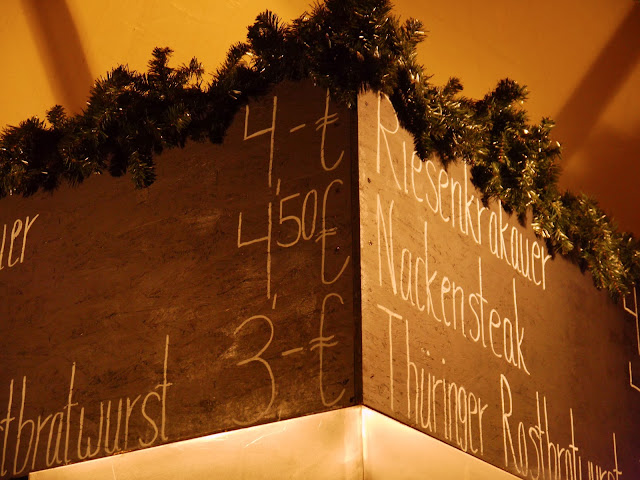 er 4,-€
4,50€
ostbratwurst 3,-€
Riesenkrakauer 4
Nackensteak 4
Thüringer Rostbratwurst